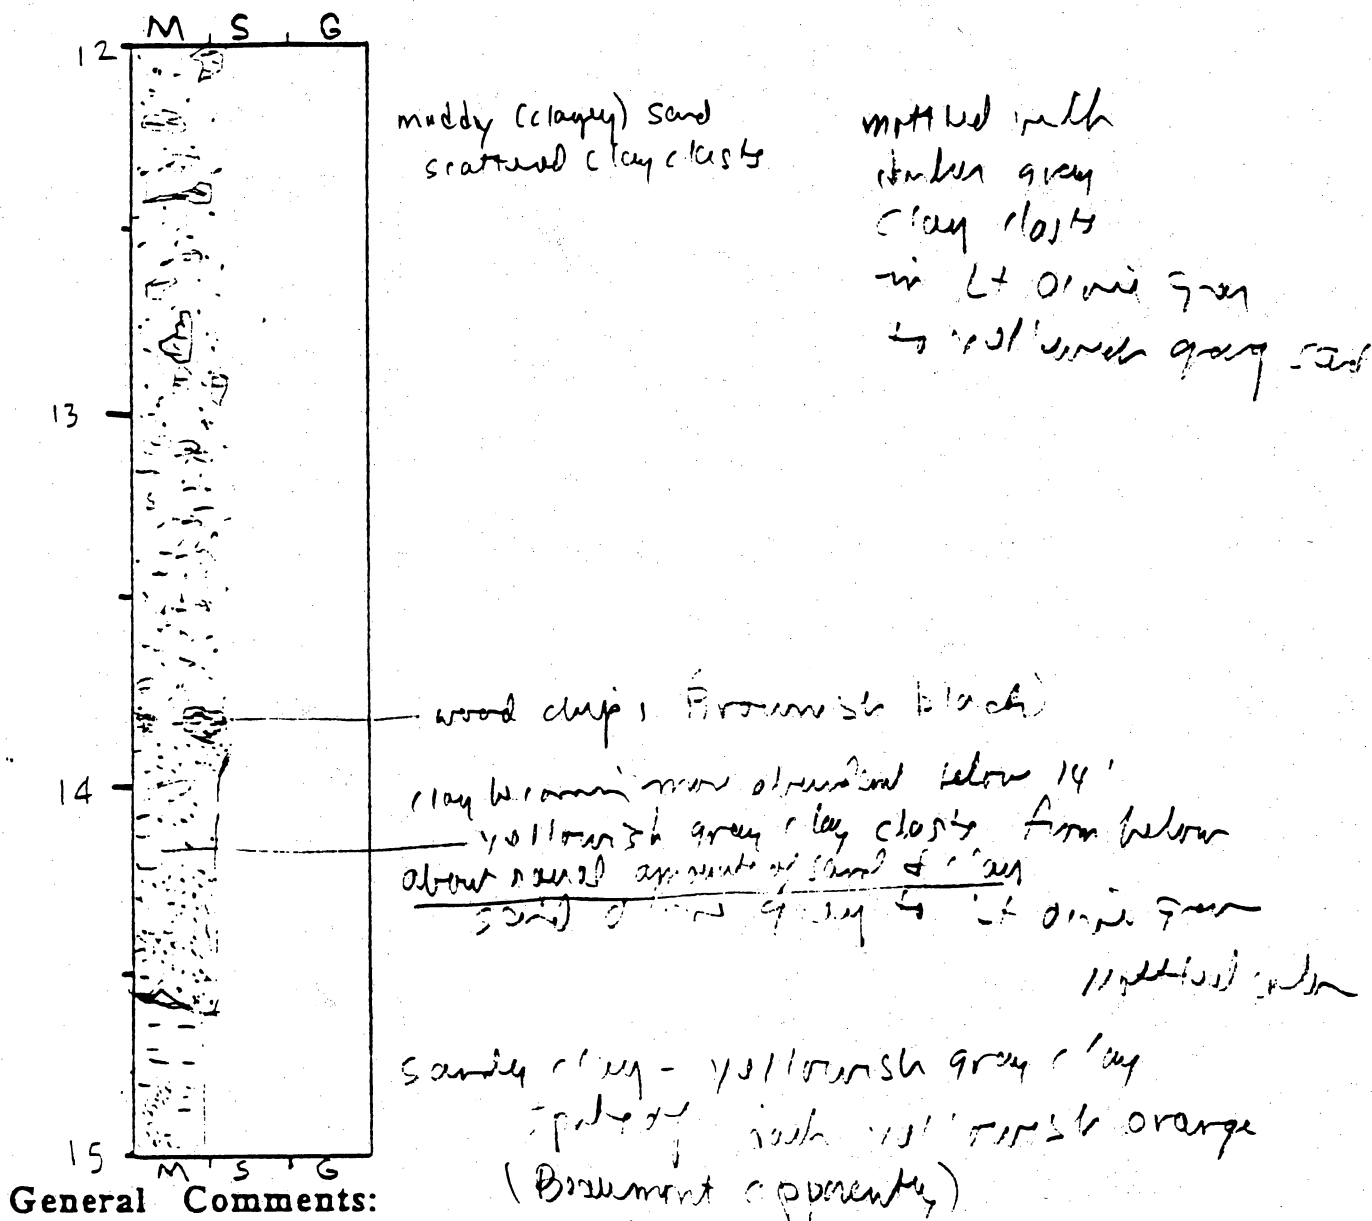 M S G
12
muddy (clayey) sand
scattered clay clasts
mottled with
gray
clay clasts
in Lt Olive Gray
to yellowish gray sand
13
wood chips Brownish black
14
clay becoming more abundant below 14'
yellowish gray clay clasts from below
about equal amounts of sand & clay
sand olive gray to Lt olive Gray
mottled color
sandy clay - yellowish gray clay
with yellowish orange
15
M S G
(Beaumont apparently)
General Comments: